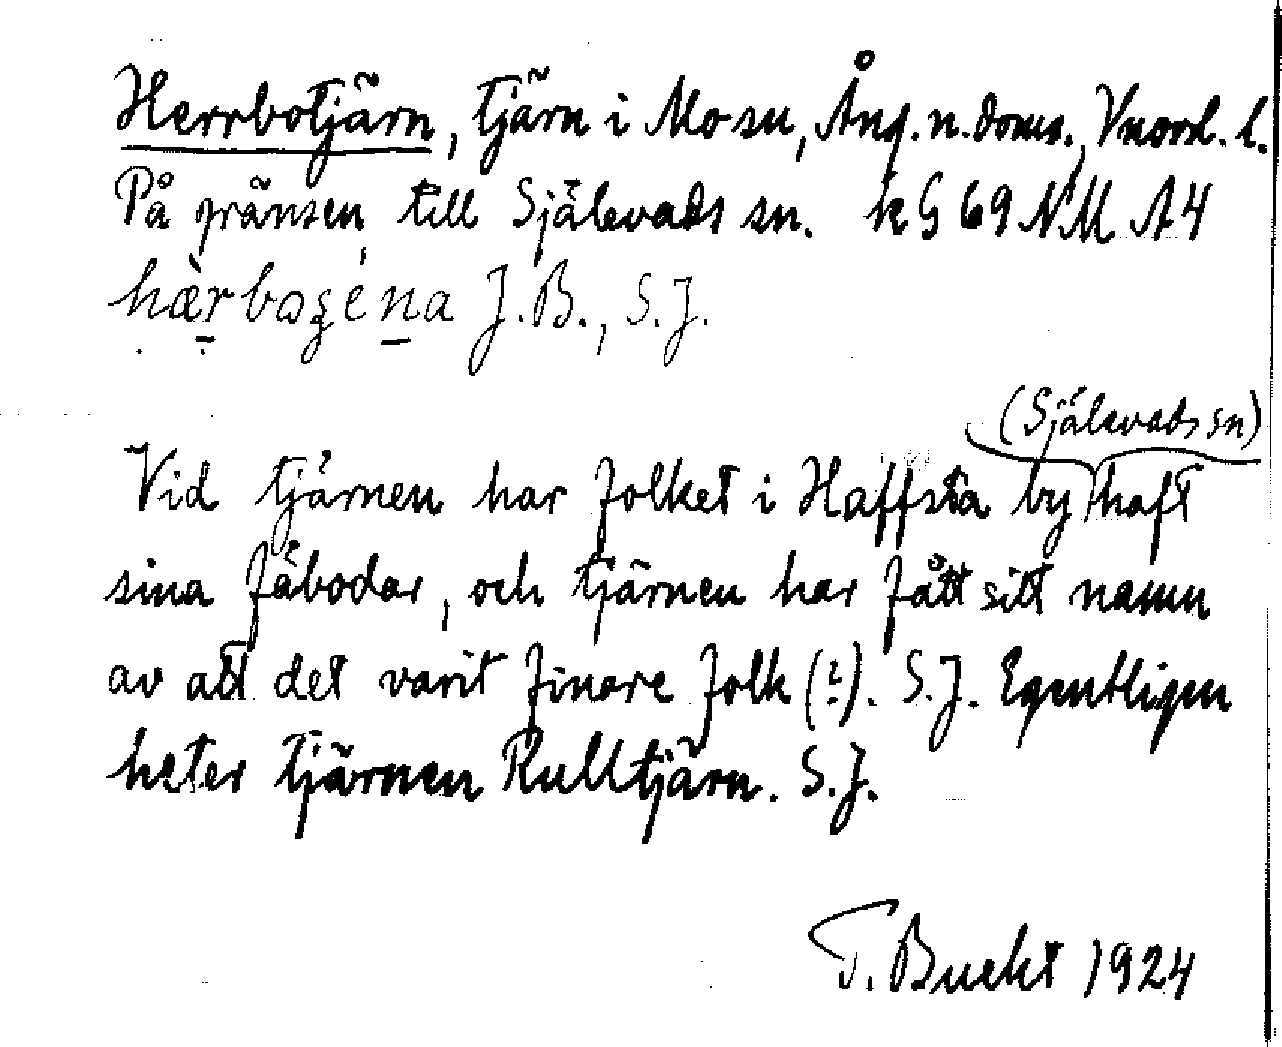 Herrbotjärn, tjärn i Mo sn, Ång. n. doms., Vnorrl. l.
På gränsen till Själevads sn. k G 69 NM A4
J.B., S.J.
(Själevads sn)
Vid tjärnen har folket i Haffsta by haft
sina fäbodar, och tjärnen har fått sitt namn
av att det varit finare folk (?). S.J. Egentligen
heter tjärnen Rulltjärn. S.J.
T. Bucht 1924